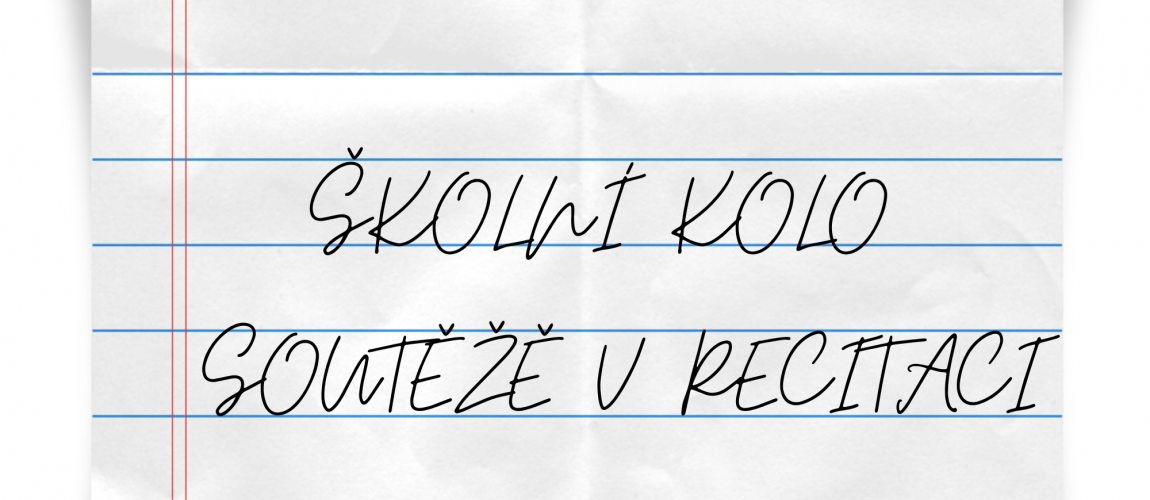 ŠKOLNÍ KOLO
SOUTĚŽĚ V RECITACI